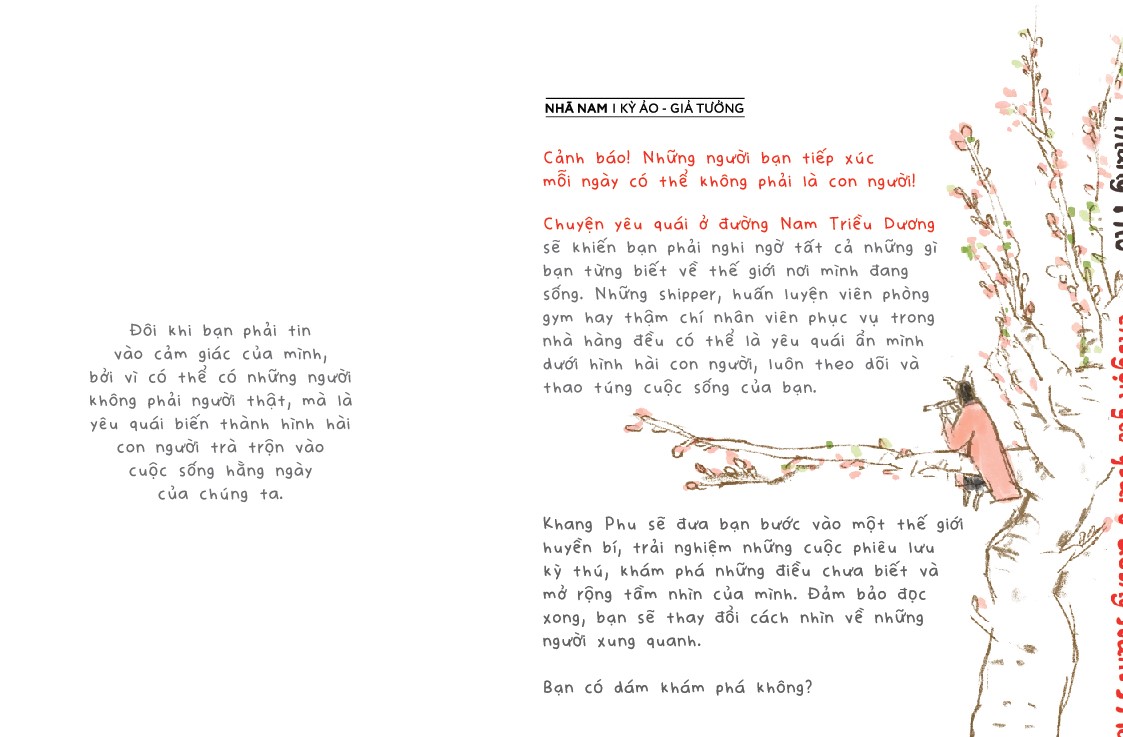 Đôi khi bạn phải tin
vào cảm giác của mình,
bởi vì có thể có những người
không phải người thật, mà là
yêu quái biến thành hình hài
con người trà trộn vào
cuộc sống hằng ngày
của chúng ta.
NHÃ NAM | KỲ ẢO - GIẢ TƯỞNG
Cảnh báo! Những người bạn tiếp xúc
mỗi ngày có thể không phải là con người!
Chuyện yêu quái ở đường Nam Triều Dương
sẽ khiến bạn phải nghi ngờ tất cả những gì
bạn từng biết về thế giới nơi mình đang
sống. Những shipper, huấn luyện viên phòng
gym hay thậm chí nhân viên phục vụ trong
nhà hàng đều có thể là yêu quái ẩn mình
dưới hình hài con người, luôn theo dõi và
thao túng cuộc sống của bạn.
Khang Phu sẽ đưa bạn bước vào một thế giới
huyền bí, trải nghiệm những cuộc phiêu lưu
kỳ thú, khám phá những điều chưa biết và
mở rộng tầm nhìn của mình. Đảm bảo đọc
xong, bạn sẽ thay đổi cách nhìn về những
người xung quanh.
Bạn có dám khám phá không?